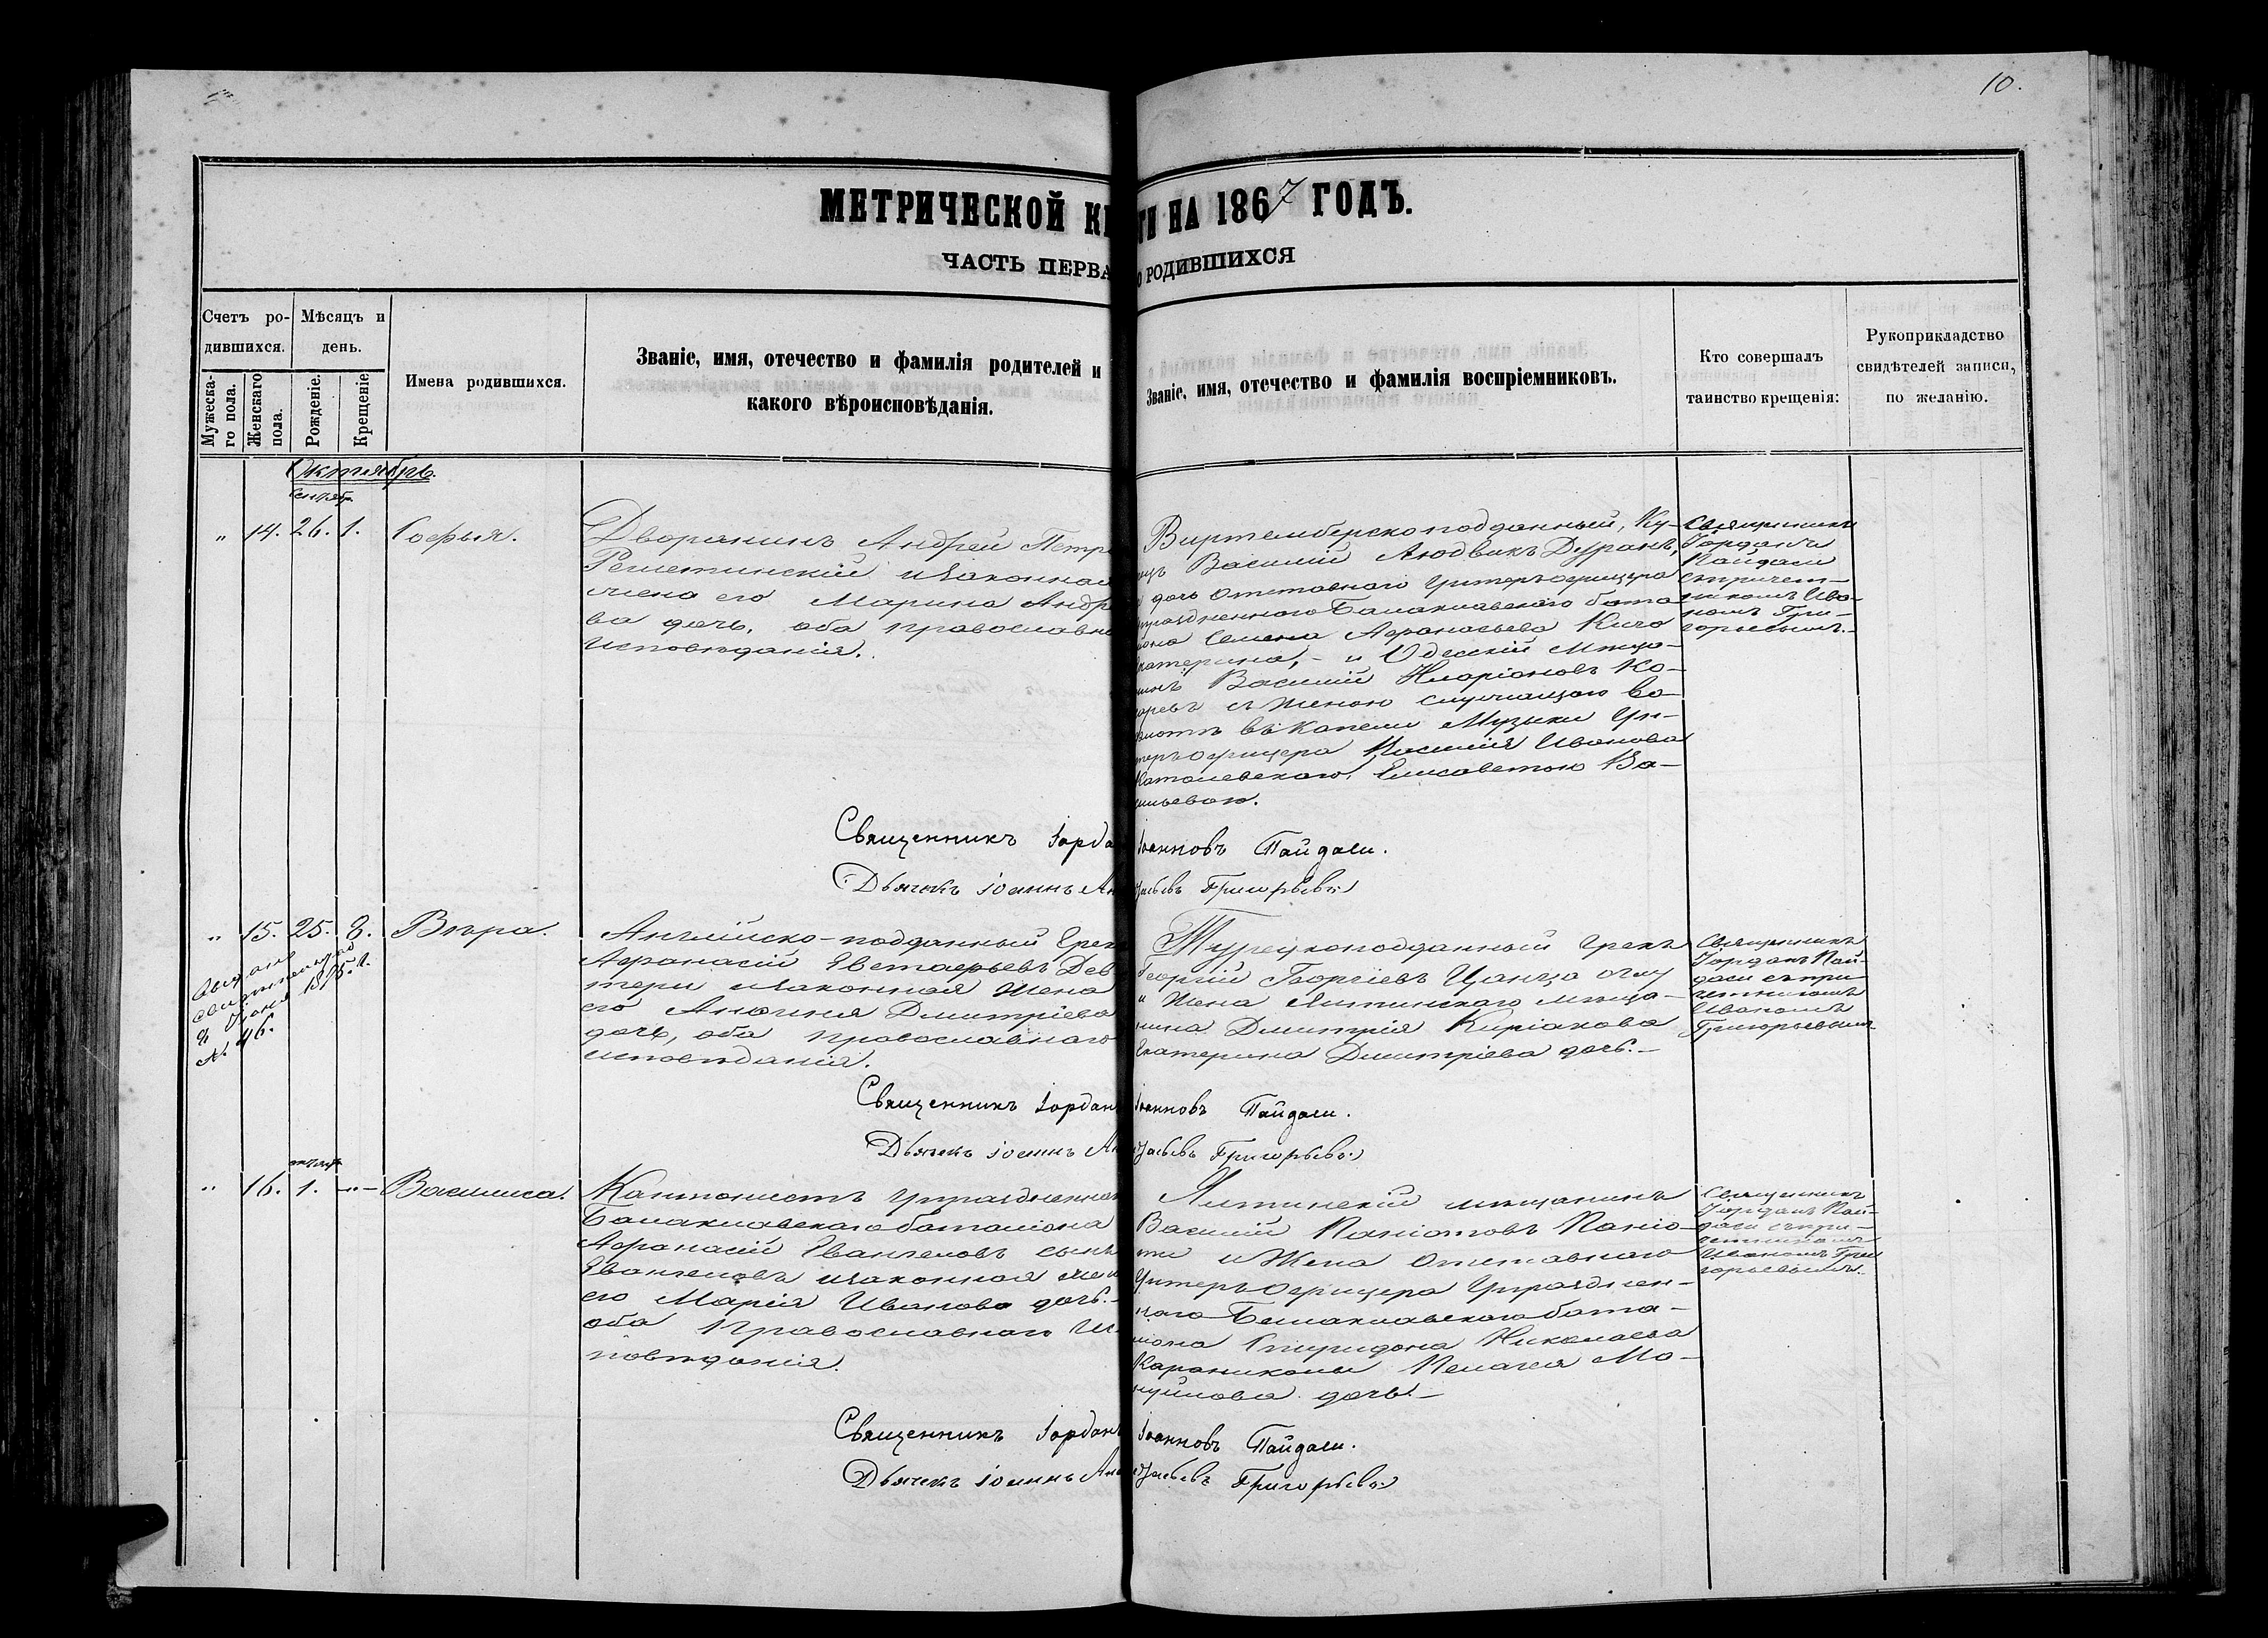 10.
МЕТРИЧЕСКОЙ КН ГИ НА 1867 ГОДЪ.
ЧАСТЬ ПЕРВА О РОДИВШИХСЯ
Счетъ ро-
дившихся.
Мужеска-
го пола.
Женскаго
пола.
Мѣсяцъ и
день.
Рожденіе.
Крещеніе
Имена родившихся.
Званіе, имя, отечество и фамилія родителей и
какого вѣроисповѣданія.
Званіе, имя, отечество и фамилія воспріемниковъ.
Кто совершалъ
таинство крещенія:
Рукоприкладство
свидѣтелей записи,
по желанію.
Октябрь.
Сентябр.
„ 14. 26. 1. Софья.
Дворянинъ Андрей Петр
Решетинскій и законная
жена его Марина Андр
ва дочь, оба православн
исповѣданія.
Виртембергскоподданный, Ку-
пецъ Василій Людвикъ Дуранъ,
и дочь отставного Унтеръ-офицера
упраздненного Балаклавскаго бата-
ліона Семена Афанасьева Кичо
Екатерина, - и Одесскій Мѣща-
нинъ Василій Иларіоновъ Ко-
съ женою служащаго во
флотѣ въ капели Музыки Ун-
теръ-офицера Василія Иванова
Елисаветою Ва-
сильевою.
Священникъ
Іорданъ
Пайдаси
съ причет-
никомъ Ива-
номъ Гри-
горьевымъ.-
Священникъ Іорда Іоанновъ Пайдаси.
Дьячекъ Іоаннъ Ан сьевъ Григорьевъ
„ 15. 25. 8. Вѣра.
Выдано
свидетельство
8 Июня 1895 г.
№ 46.
Англійско-подданный Грек
Афанасій Евстафьевъ Дев
тери и законная жена
его Анфиня Дмитріева
дочь, оба православнаго
исповѣданія.
Турецкоподданный Грекъ
Георгій Георгіевъ Цанца оглу
и Жена Ялтинскаго мѣща-
нина Дмитрія Киріакова
Екатерина Дмитріева дочь.-
Священникъ
Іорданъ Пай-
даси съ при-
четникомъ
Иваномъ
Григорьевымъ
Священникъ Іордан Іоанновъ Пайдаси.
Дьячекъ Іоаннъ Ан сьевъ Григорьевъ
октябр.
„ 16. 1. -„- Василиса.
Кантонистъ упраздненнаг
Балаклавскаго баталіона
Афанасій Евангеловъ сынъ
Евангеловъ и законная жен
его Марія Иванова дочь.-
оба Православнаго Ис-
повѣданія.
Ялтинскій мѣщанинъ
Василій Паніотовъ Паніо-
ти и Жена Отставнаго
Унтеръ Офицера Упразднен-
наго Балаклавскаго бата-
ліона Спиридона Николаева
Караниколы Пелагея Ма-
нуйлова дочь.-
Священникъ
Іорданъ Пай-
даси съ при-
четникомъ
Иваномъ Гри
горьевымъ.
Священникъ Іордан Іоанновъ Пайдаси.
Дьячекъ Іоаннъ Ана сьевъ Григорьевъ